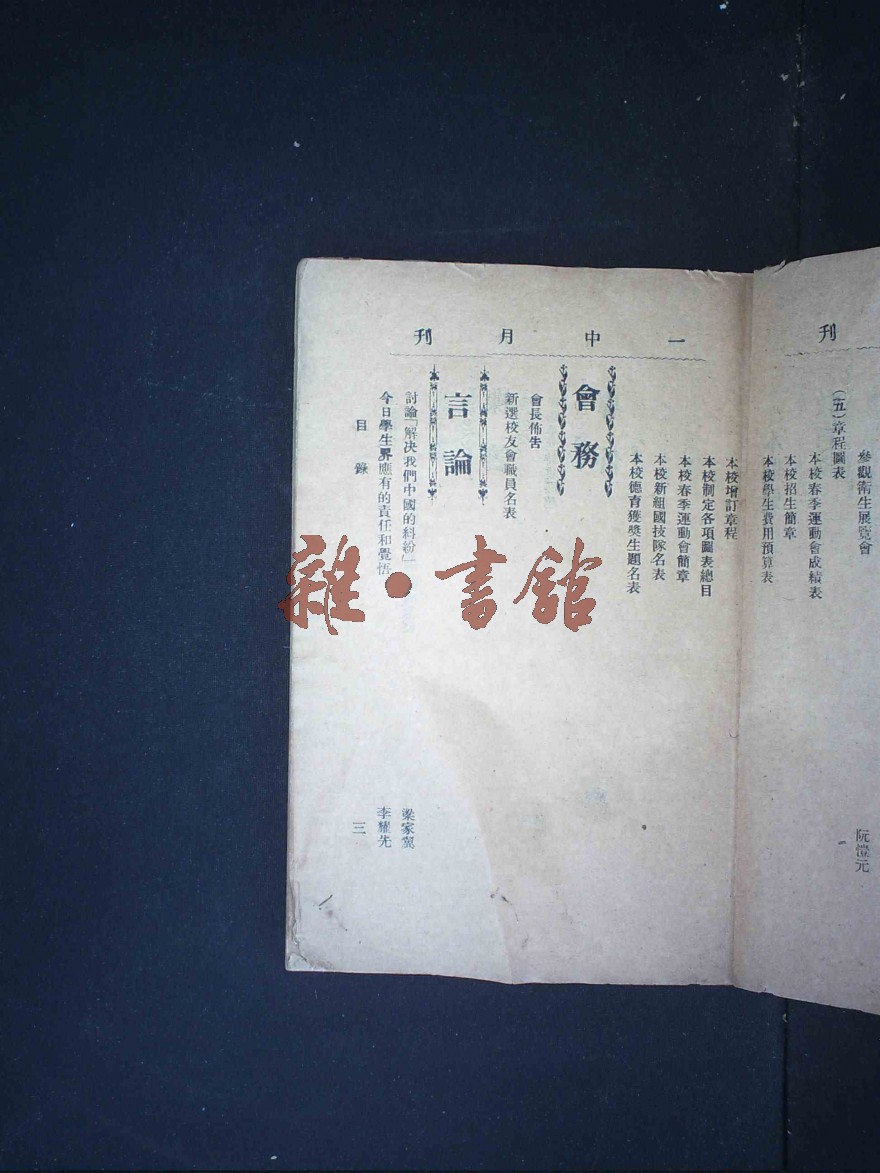 刊
參觀衛生展覽會
阮愷元
(五)章程圖表
本校春季運動會成績表
本校招生簡章
本校學生費用預算表
一中月刊
本校增訂章程
本校制定各項圖表總目
本校春季運動會簡章
本校新組國技隊名表
本校德育獲獎生題名表
會務
會長佈告
新選校友會職員名表
言論
討論「解決我們中國的糾紛」
梁家冀
今日學生界應有的責任和覺悟
李耀先
目錄
三
雜·書館